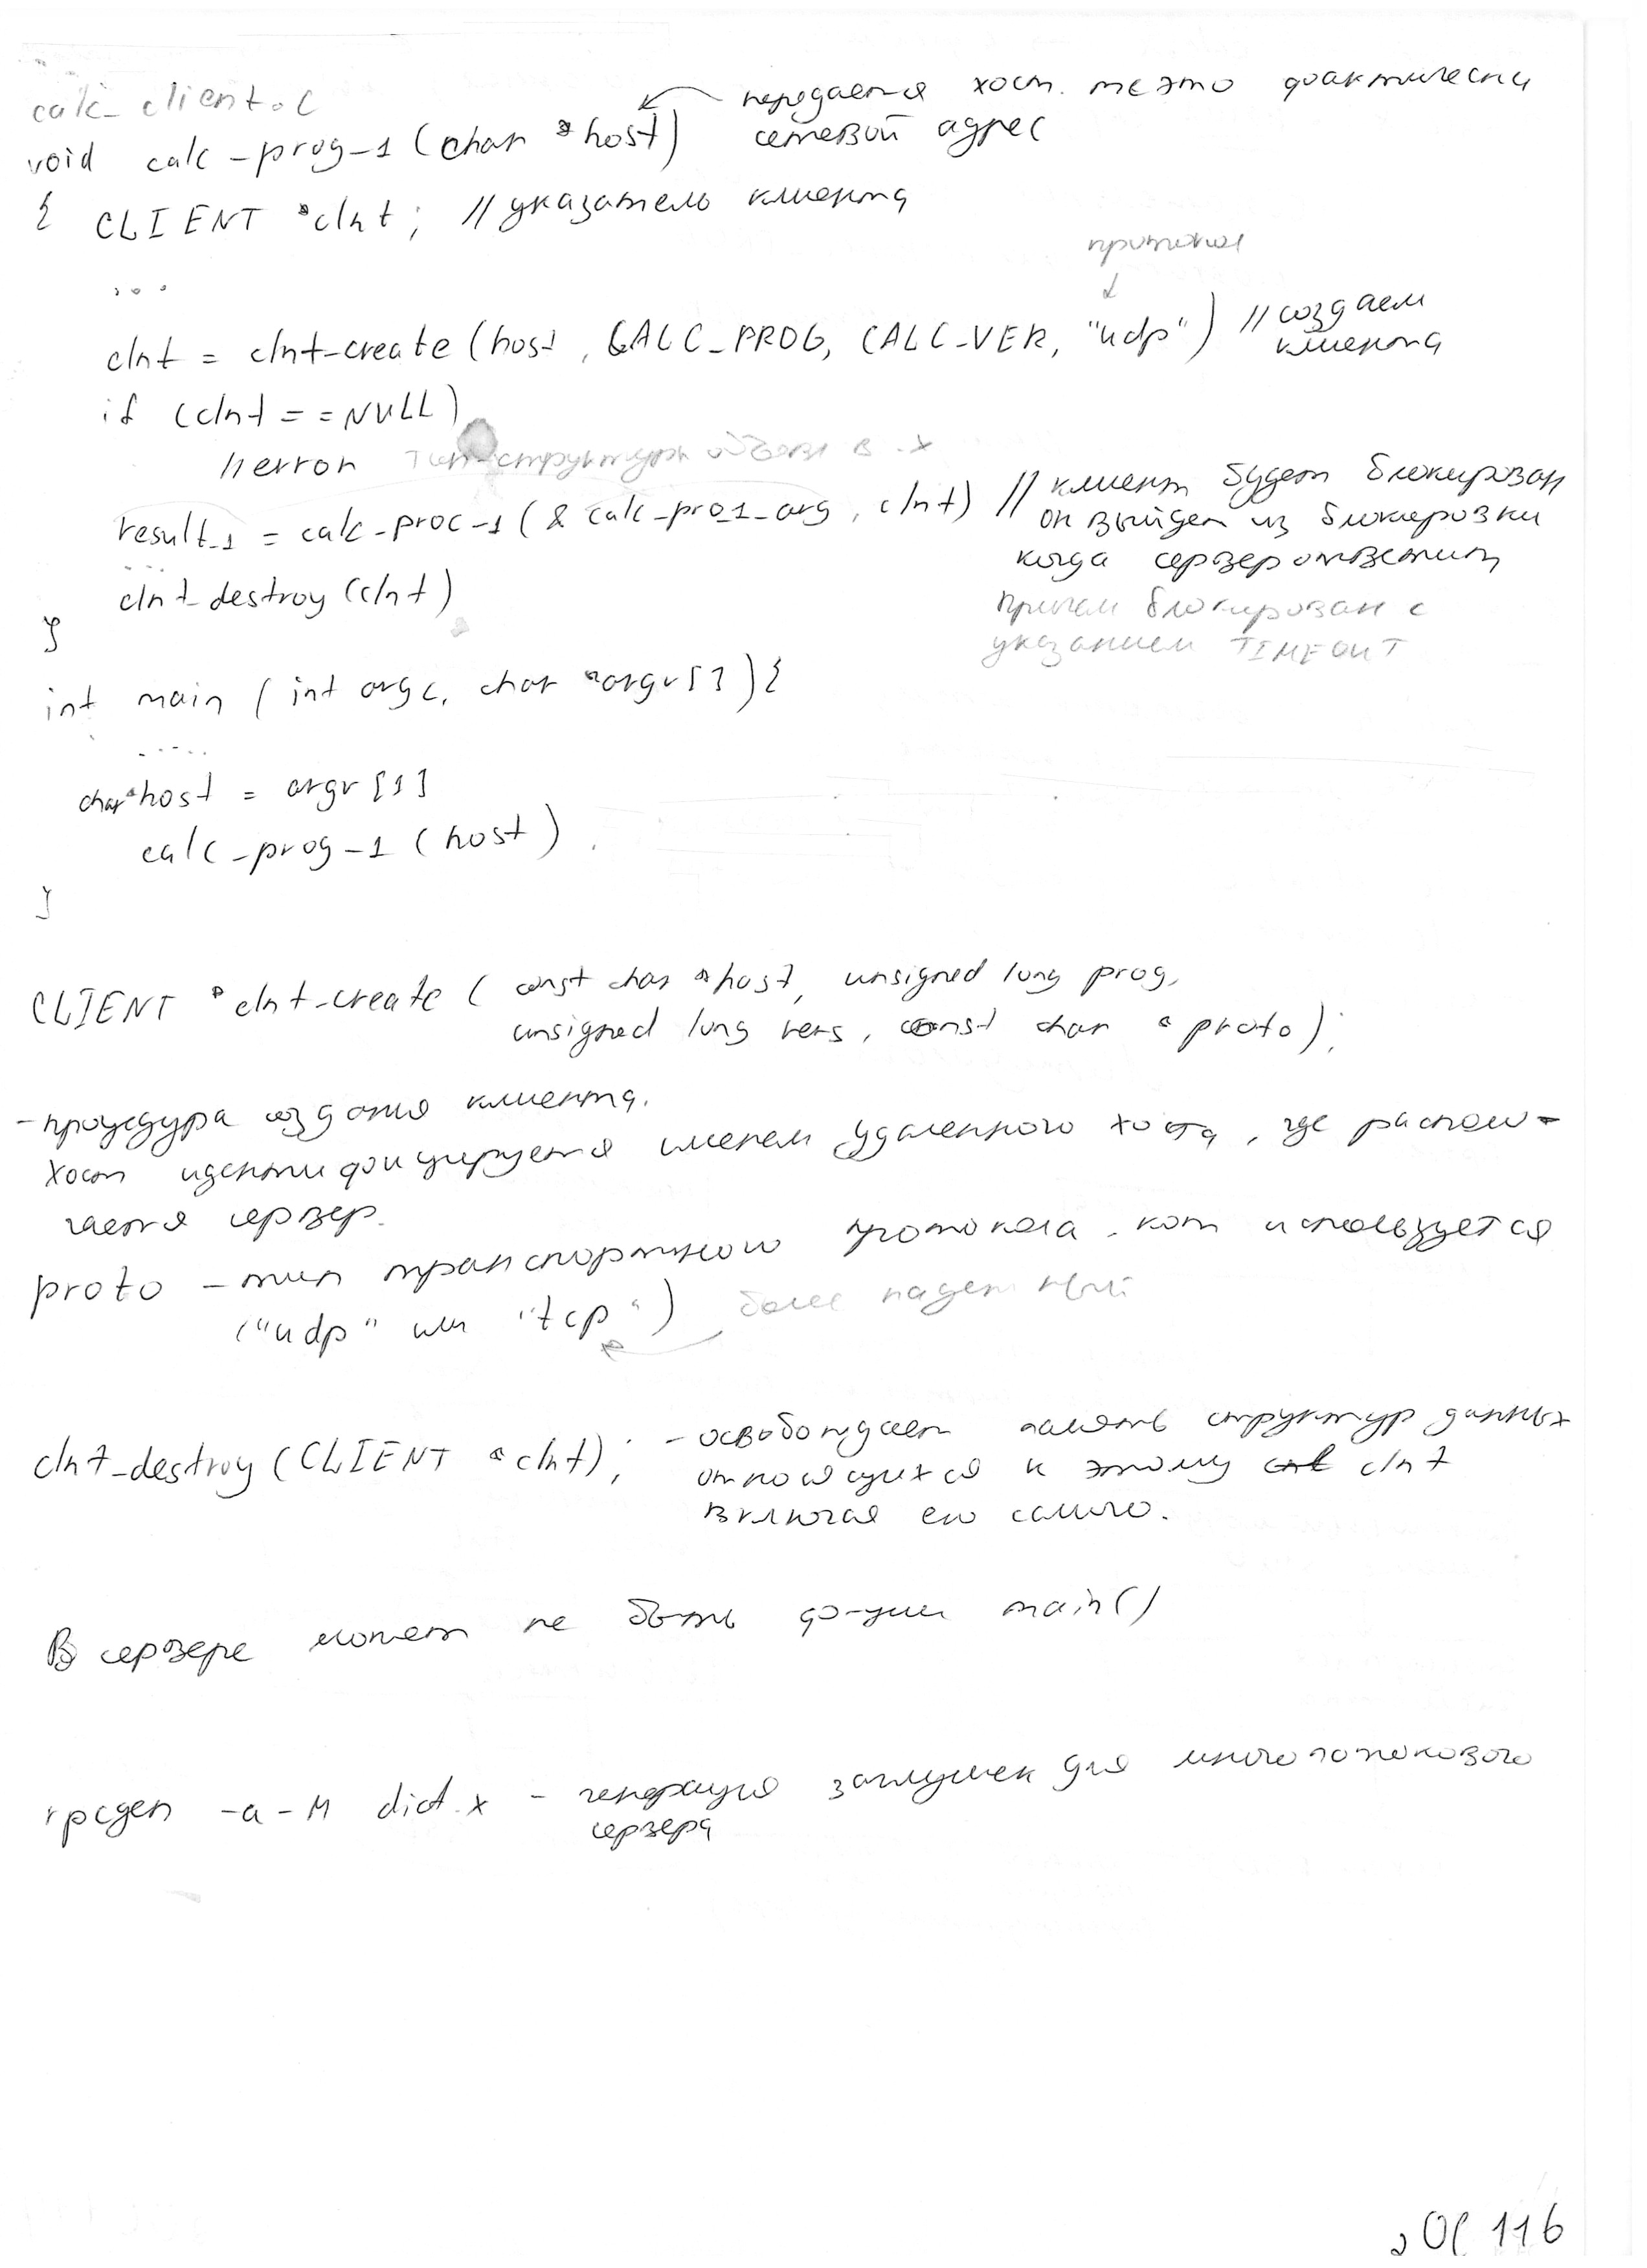 calc_client.c
void calc_prog_1 (char *host) передается хост. те это фактически
сетевой адрес
{ CLIENT *clnt; // указатель клиента
...
протокол
↓
clnt = clnt_create (host, CALC_PROG, CALC_VER, "udp") // создаем
клиента
if (clnt == NULL)
// error тип структуры объявл в .x
result_1 = calc_proc_1 (& calc_pro_1_arg, clnt) // клиент будет блокирован
он выйдет из блокировки
когда сервер ответит
причем блокирован с
указанием TIMEOUT
...
clnt_destroy (clnt)
}
int main (int argc, char *argv[]) {
.....
char *host = argv[1]
calc_prog_1 (host)
}
CLIENT *clnt_create ( const char *host, unsigned long prog,
unsigned long vers, const char *proto);
- процедура создания клиента.
хост идентифицируется именем удаленного хоста, где распола-
гается сервер.
proto - тип транспортного протокола, кот используется
("udp" или "tcp") более надежный
clnt_destroy (CLIENT *clnt); - освобождает память структур данных
относящихся к этому clnt
включая его самого.
В сервере может не быть ф-ции main()
rpcgen -a -M dict.x - генерация заглушек для многопотокового
сервера
ОС 116